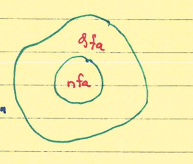 gfa
nfa